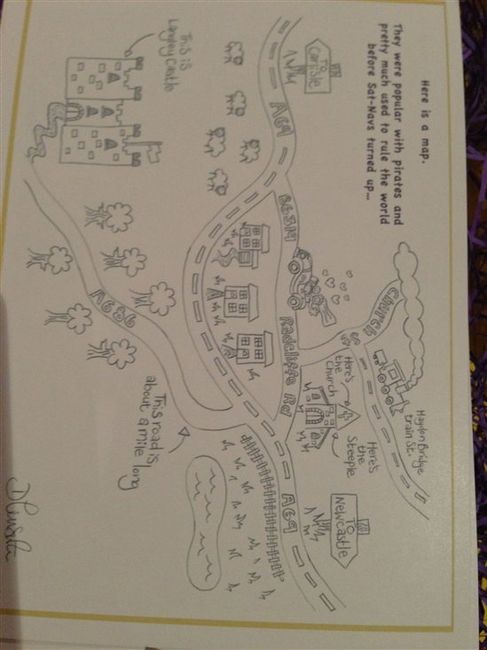 Here is a map.
They were popular with pirates and
pretty much used to rule the world
before Sat-Navs turned up...
Haydon Bridge
train St.
Church
Here's
the
Steeple
Here's
the
Church
TO
Newcastle
TO
Carlisle
A69
B6319
Radcliffe Rd
A69
This is
Langley Castle
A686
This road is
about a mile long